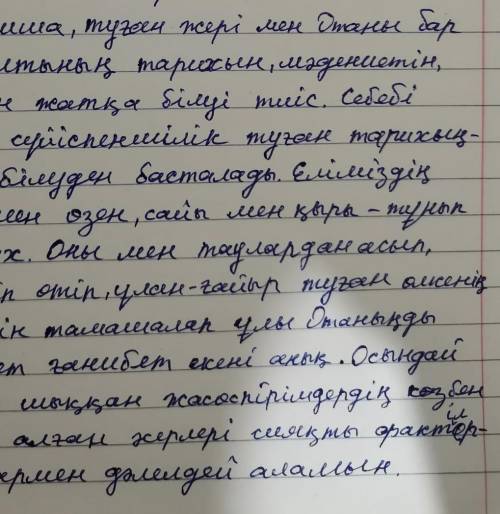 ша, туған жері мен Отаны бар
лтының тарихын, мәдениетін,
н жатқа білуі тиіс. Себебі
сүйіспеншілік туған тарихың-
білуден басталады. Еліміздің
мен өзен, сайы мен қыры - тұнып
х. Оны мен таулардан асып,
п өтіп, ұлан-ғайыр туған өлкенің
ін тамашалап ұлы Отаныңды
ет ғанибет екені анық. Осындай
шыққан жасөспірімдердің көзбен
алған жерлері сияқты фрактор-
іл
ермен дәлелдей аламын.